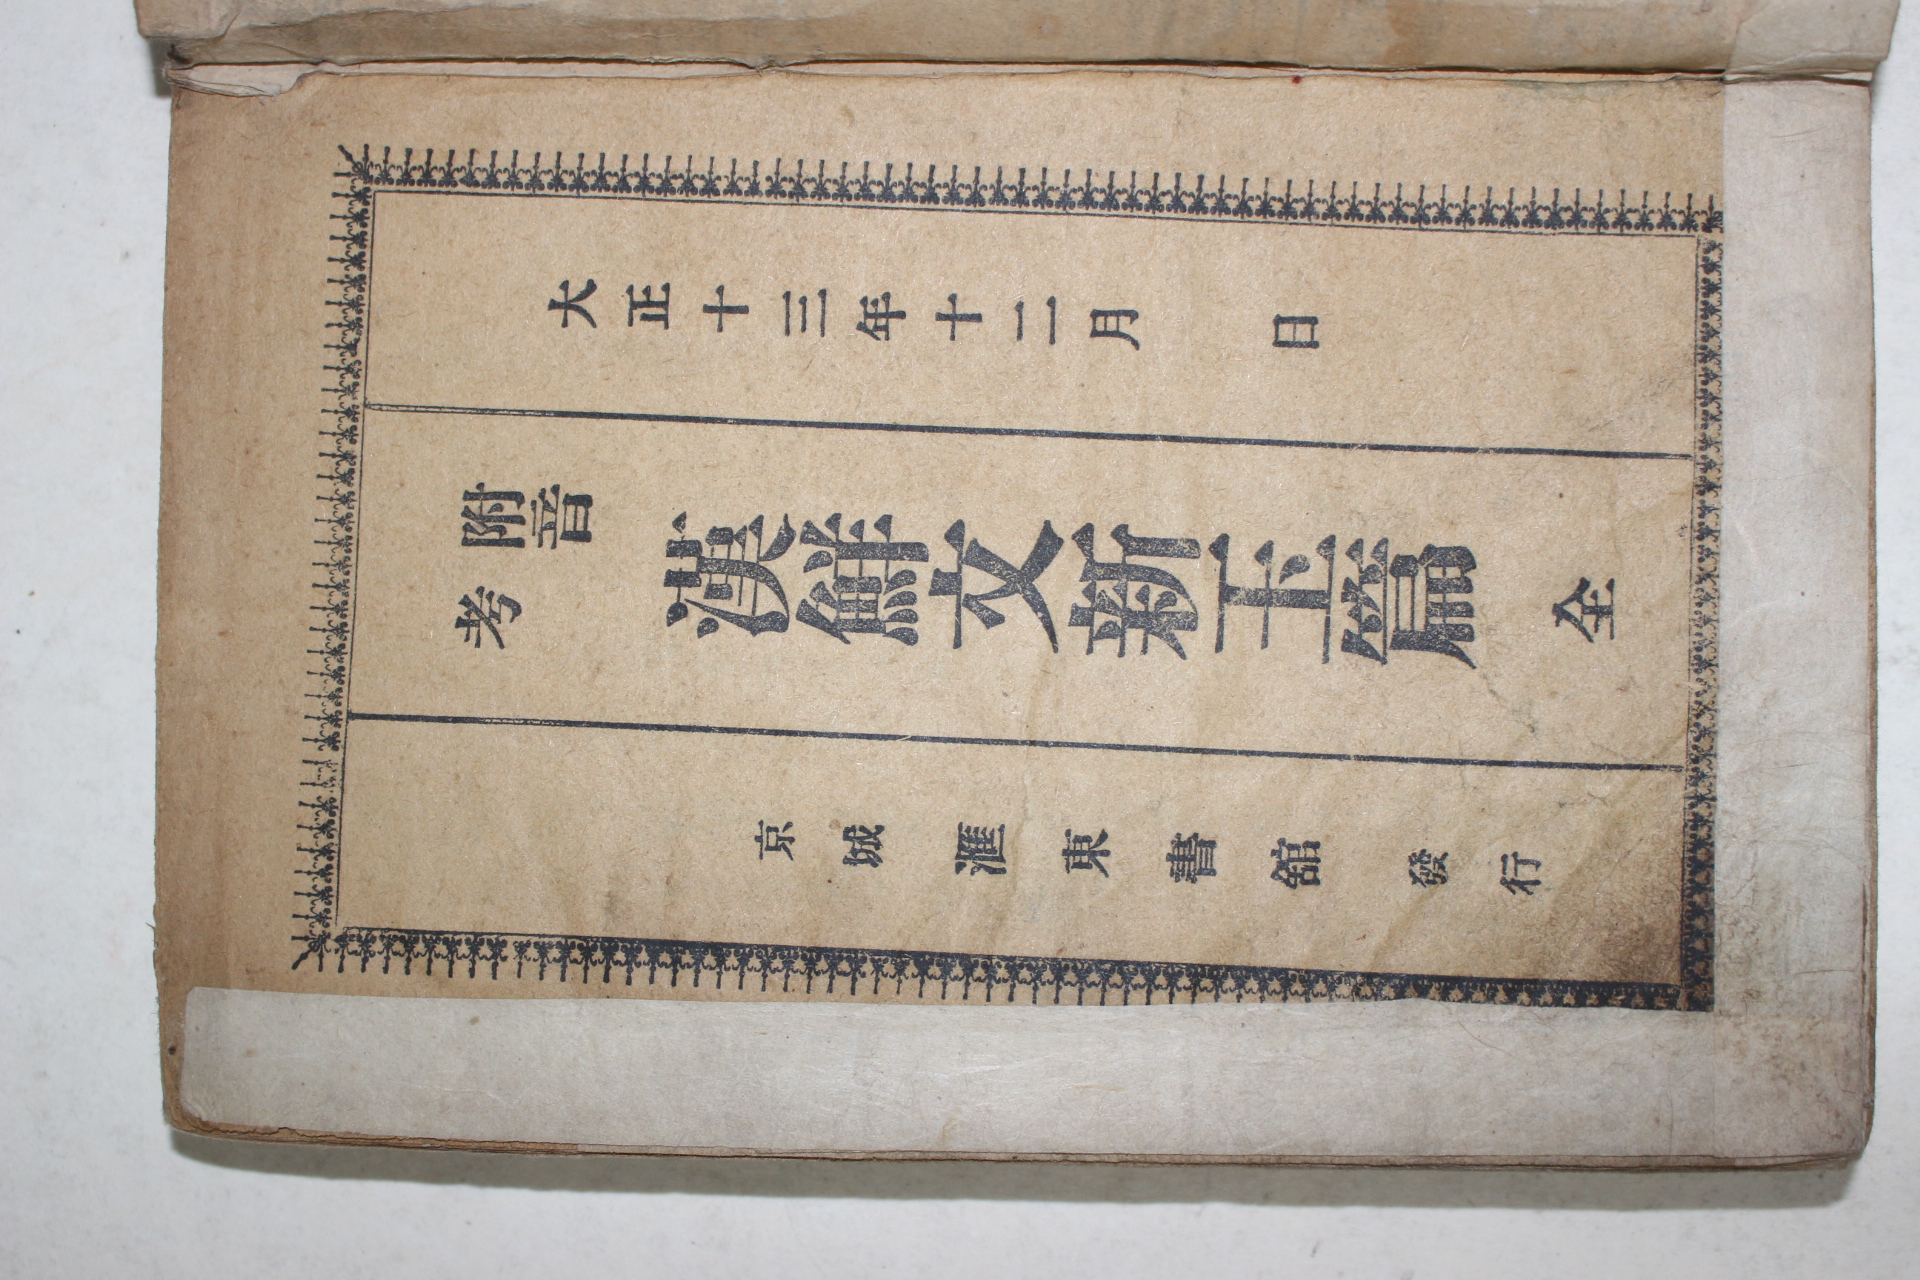 大正十三年十二月　日
附音
考
漢鮮文新玉篇　全
京城　滙東書舘　發行